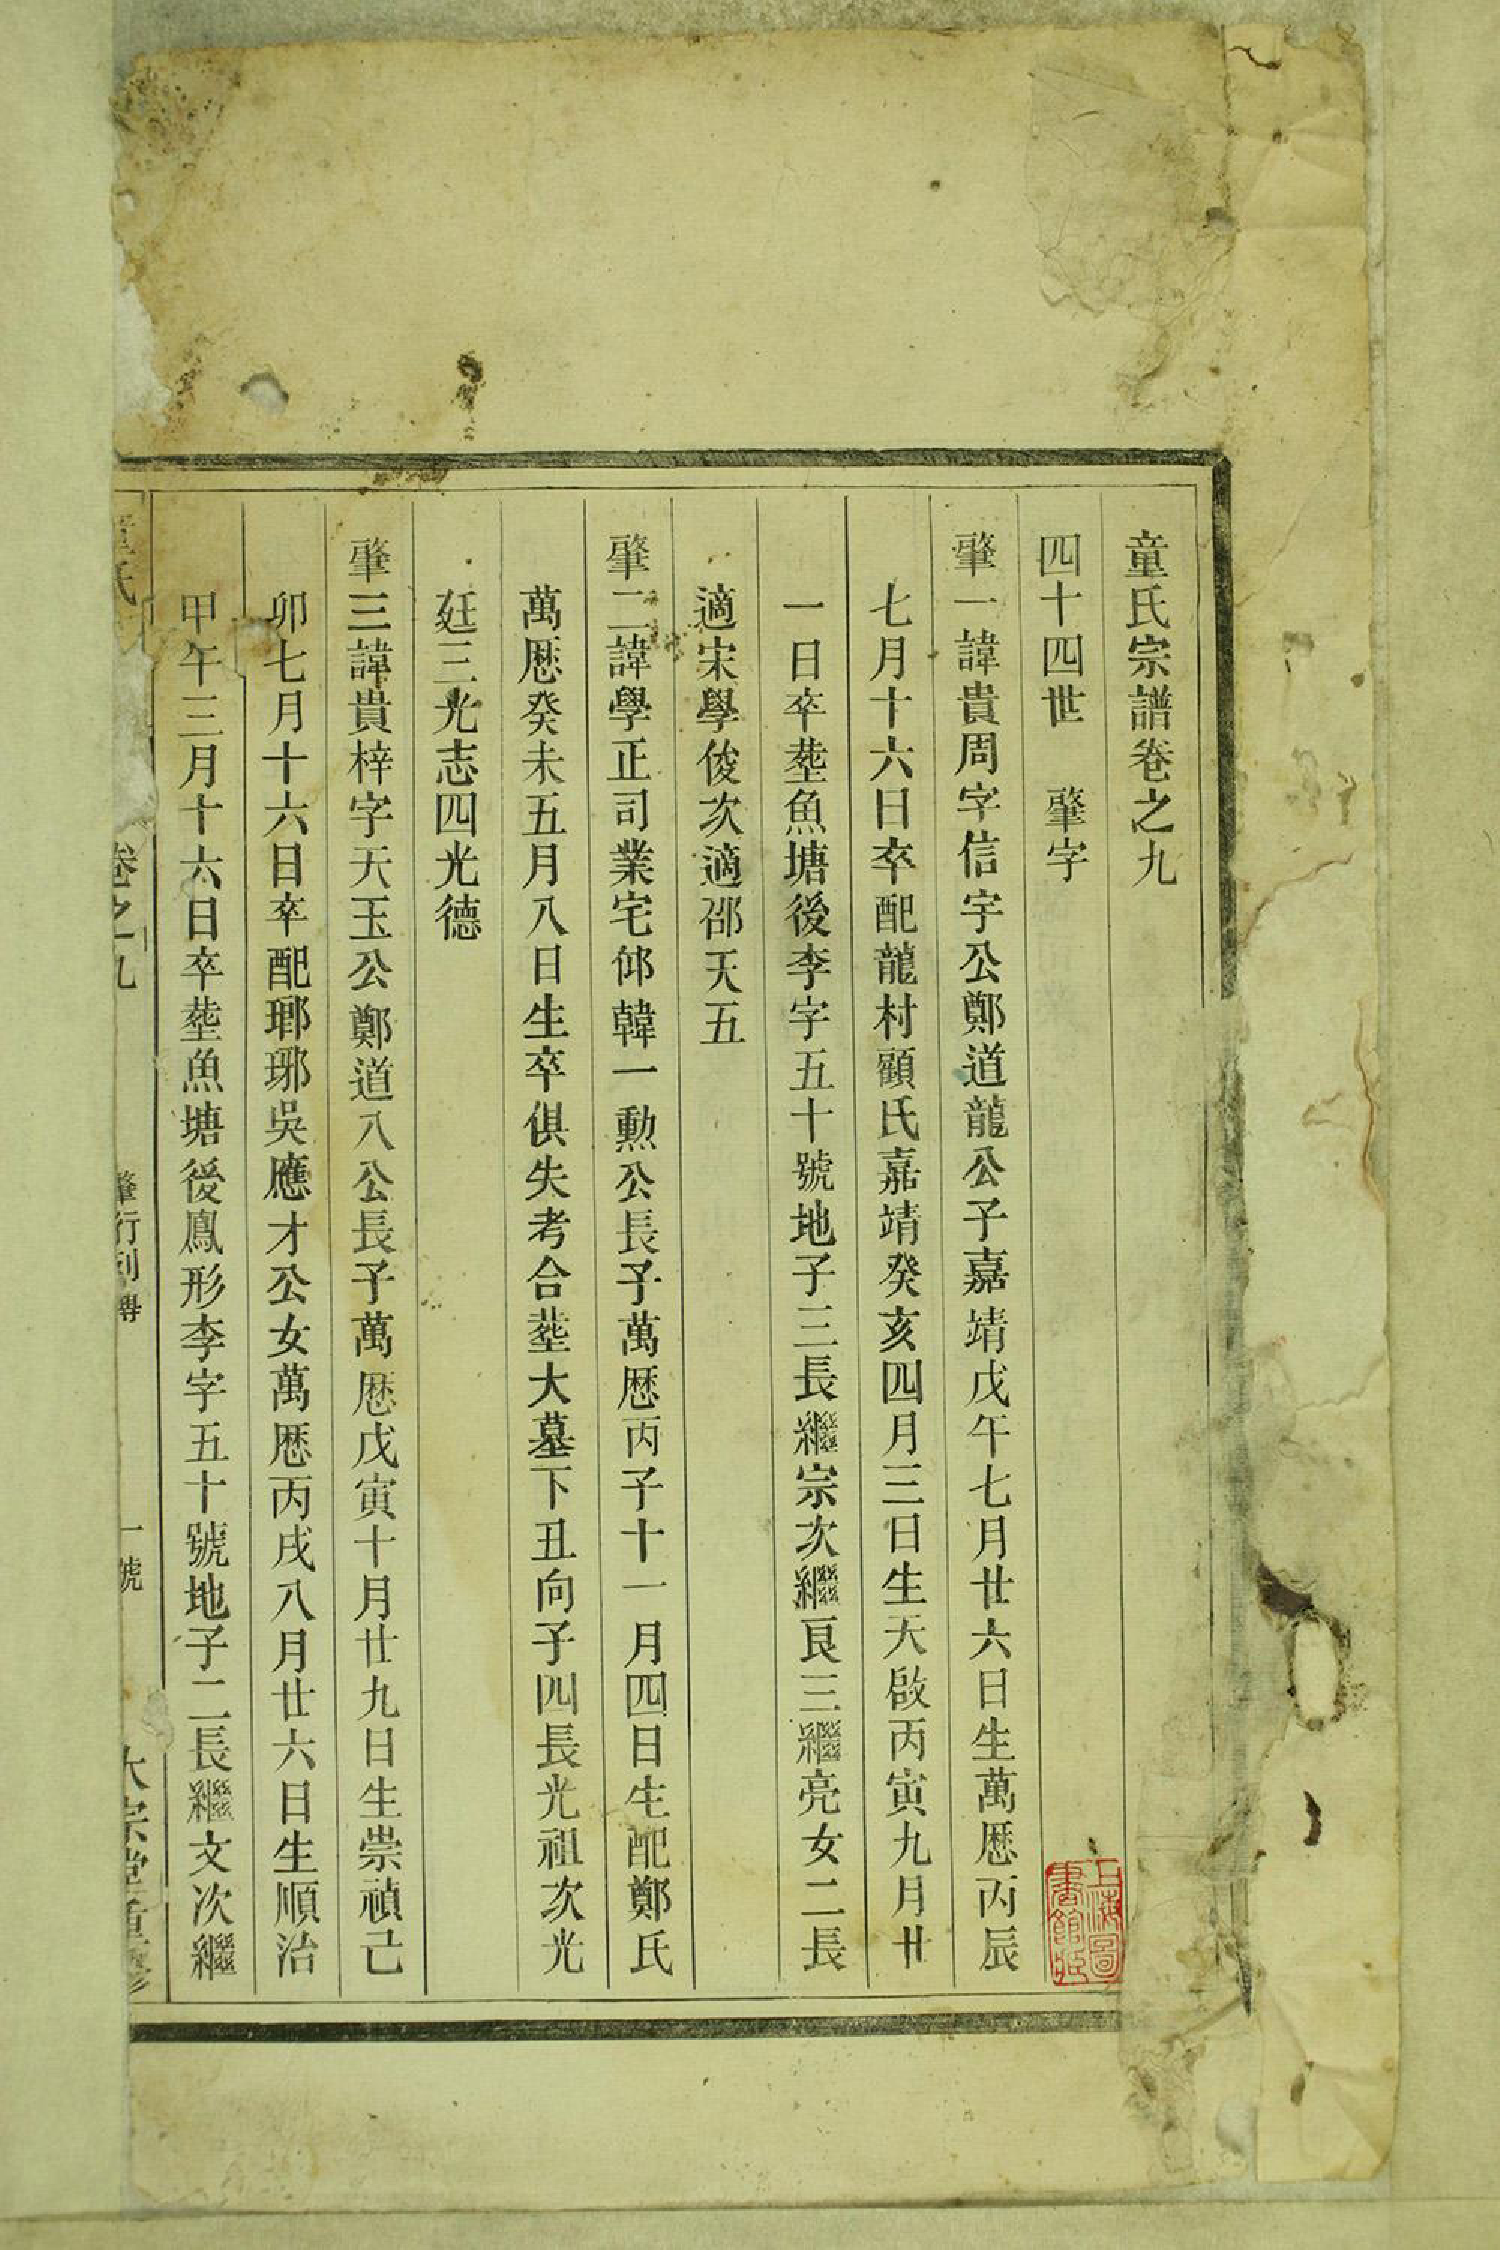 童氏宗譜卷之九
四十四世　肇字
肇一諱貴周字信宇公鄭道龍公子嘉靖戊午七月廿六日生萬厯丙辰
七月十六日卒配龍村顧氏嘉靖癸亥四月三日生天啟丙寅九月廿
一日卒塟魚塘後李字五十號地子三長繼宗次繼良三繼亮女二長
適宋學俊次適邵天五
肇二諱學正司業宅邮韓一勲公長子萬厯丙子十一月四日生配鄭氏
萬厯癸未五月八日生卒俱失考合塟大墓下丑向子四長光祖次光
廷三光志四光德
肇三諱貴梓字天玉公鄭道八公長子萬厯戊寅十月廿九日生崇禎己
卯七月十六日卒配瑯琊吳應才公女萬厯丙戌八月廿六日生順治
甲午三月十六日卒塟魚塘後鳳形李字五十號地子二長繼文次繼
童氏
卷之九
肇行列傳
一號
大宗堂重修
上海圖書館藏